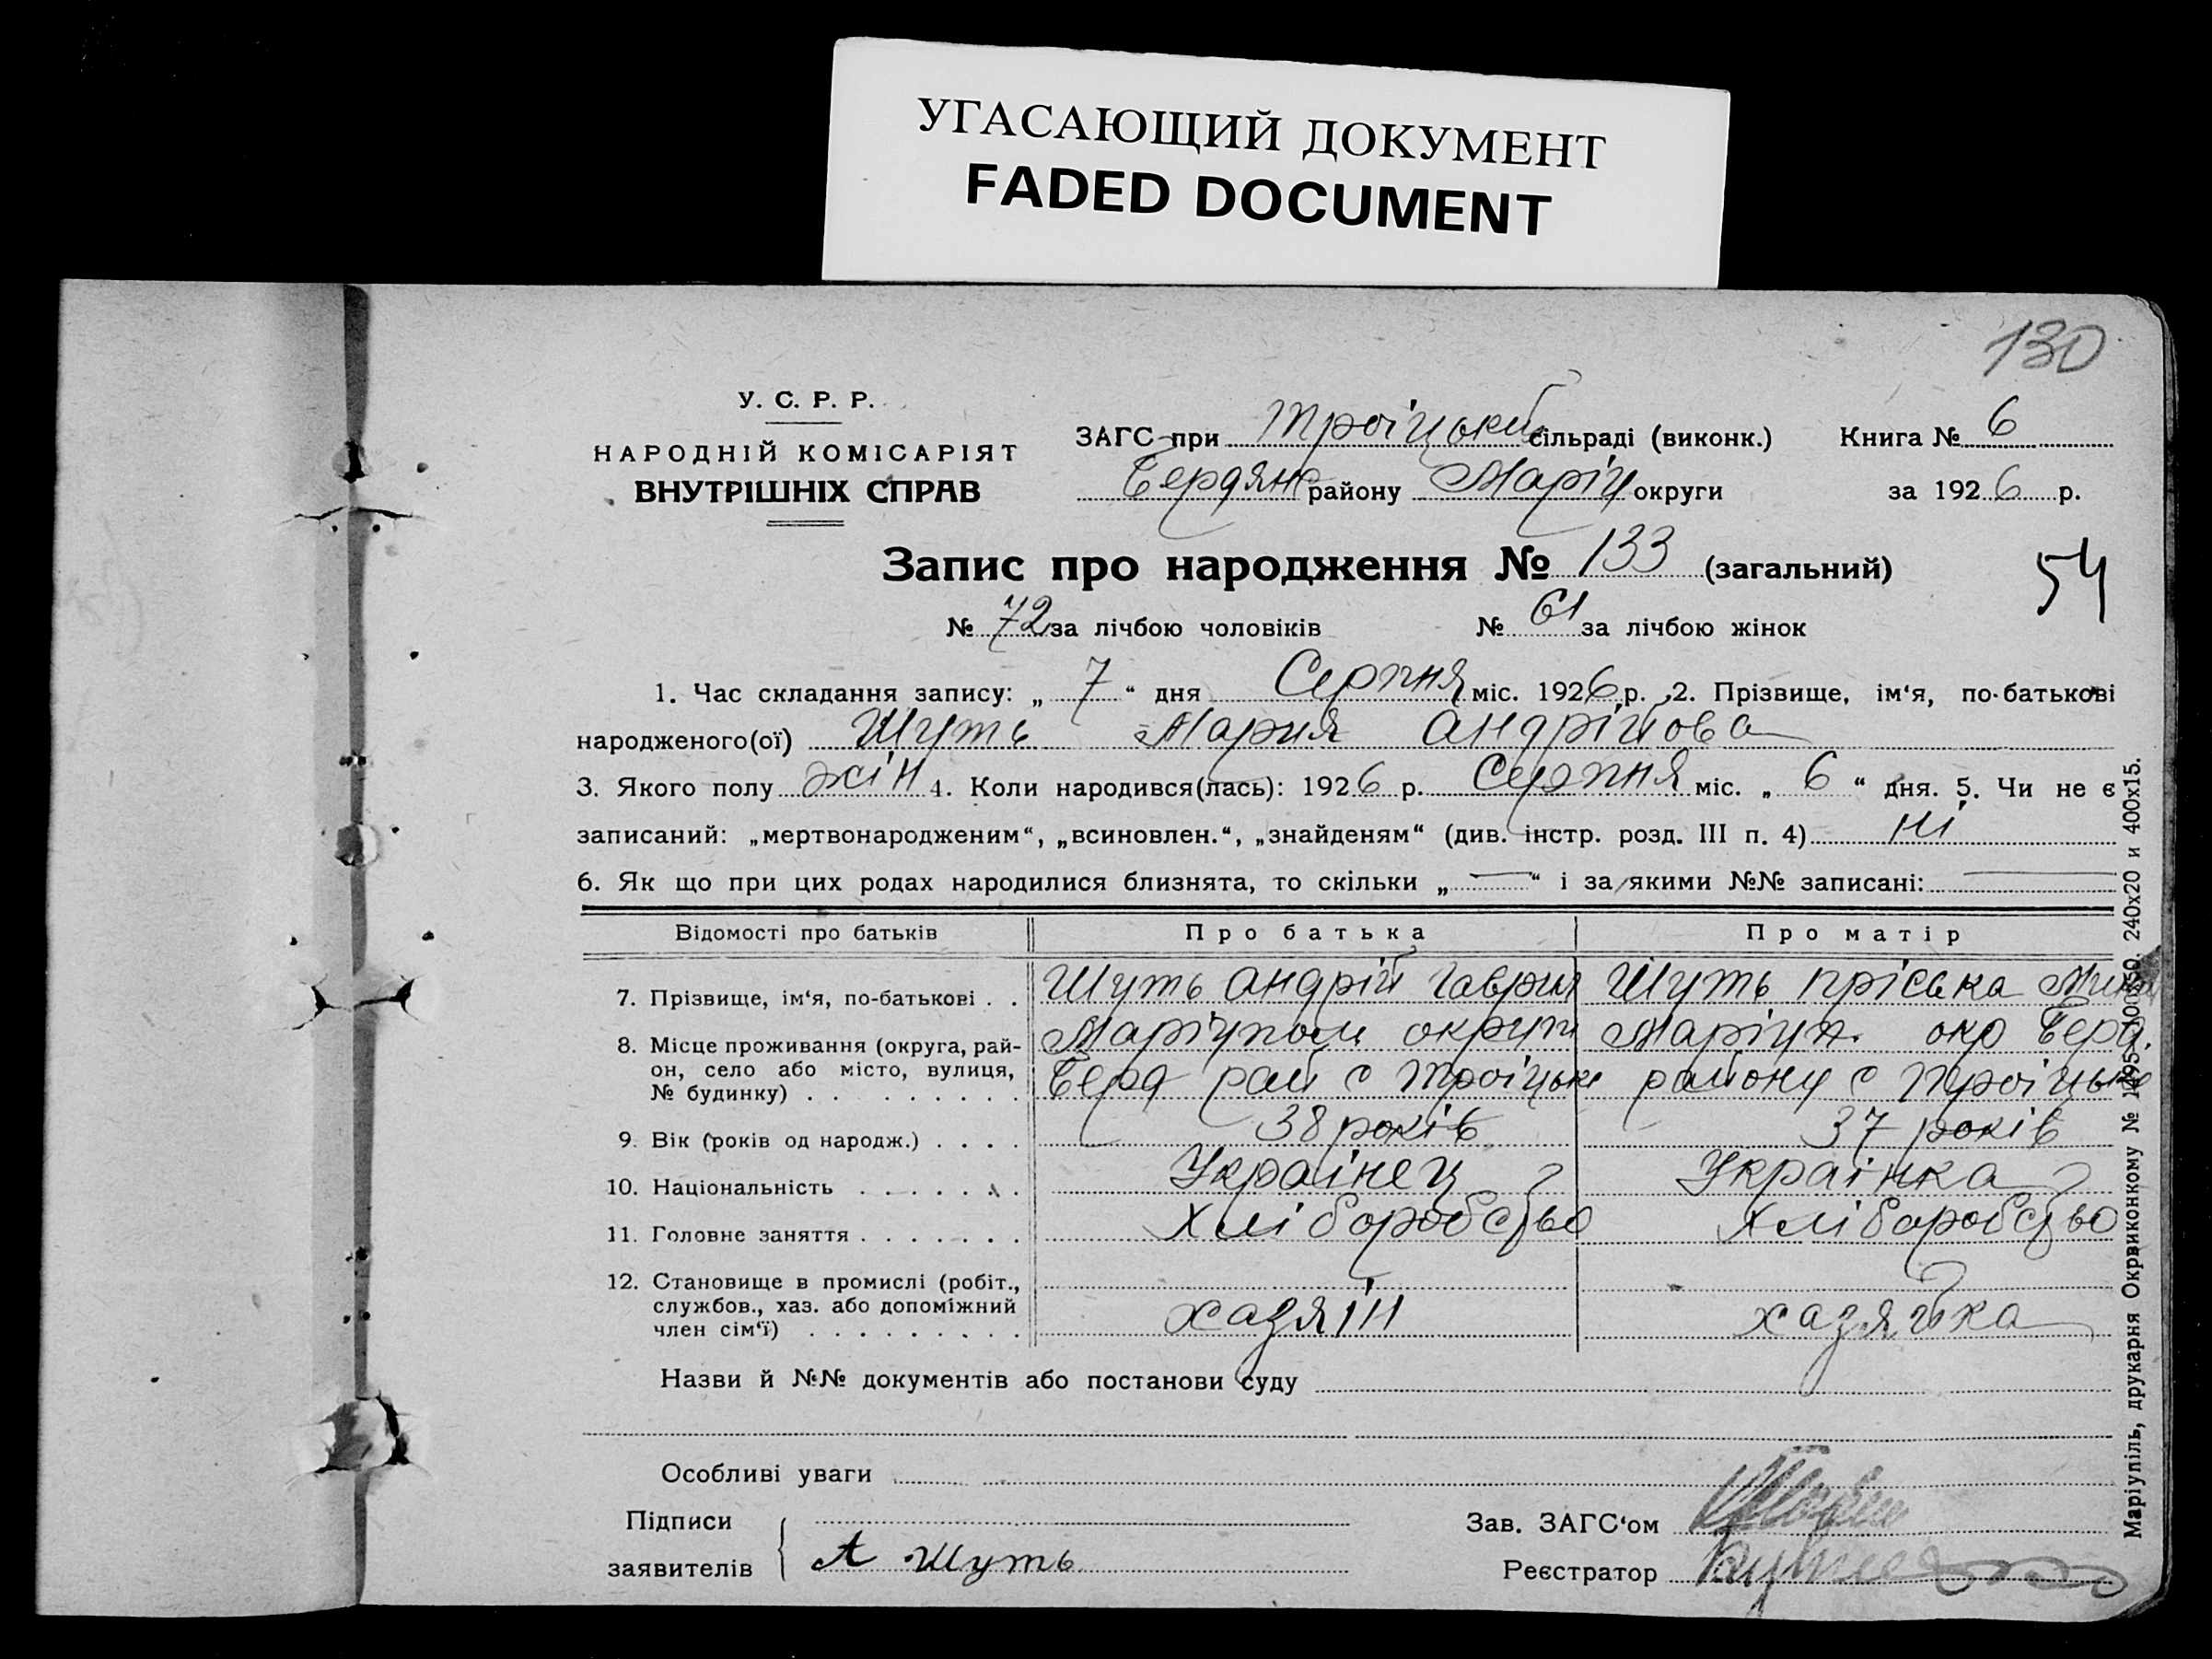 УГАСАЮЩИЙ ДОКУМЕНТ
FADED DOCUMENT
130
У. С. Р. Р.
НАРОДНІЙ КОМІСАРІЯТ
ВНУТРІШНІХ СПРАВ
ЗАГС при Троіцький сільраді (виконк.) Книга № 6
Бердянс району Маріуп округи за 1926 р.
Запис про народження № 133 (загальний)
54
№ 72 за лічбою чоловіків № 61 за лічбою жінок
1. Час складання запису: „ 7 “ дня Серпня міс. 1926 р. 2. Прізвище, ім‘я, по-батькові
народженого(ої) Шуть Мария Андрійова
3. Якого полу жін 4. Коли народився(лась): 1926 р. Серпня міс. „ 6 “ дня. 5. Чи не є
записаний: „мертвонародженим“, „всиновлен.“, „знайденям“ (див. інстр. розд. III п. 4) ні
6. Як що при цих родах народилися близнята, то скільки „ — “ і за якими №№ записані: —
Відомості про батьків Про батька Про матір
7. Прізвище, ім‘я, по-батькові . . Шуть Андрій Гаврил Шуть Пріська
8. Місце проживання (округа, рай- Маріупол округи Маріуп. окр Берд.
он, село або місто, вулиця, Берд рай с Троіцьке району с Троіцьке
№ будинку) . . . . . . . . .
9. Вік (років од народж.) . . . . 38 років 37 років
10. Національність . . . . . . . Украінец Украінка
11. Головне заняття . . . . . . . Хліборобство Хліборобство
12. Становище в промислі (робіт.,
службов., хаз. або допоміжний хазяін хазяйка
член сім‘ї) . . . . . . . . .
Назви й №№ документів або постанови суду
Особливі уваги
Підписи
заявителів А Шуть
Зав. ЗАГС‘ом
Реєстратор
Маріупіль, друкарня Окрвиконкому № 240х20 и 400х15.